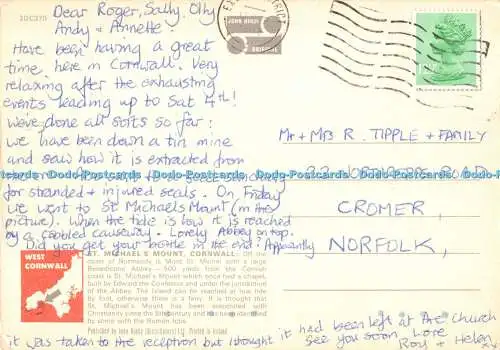 2DC379
Dear Roger, Sally, Olly
Andy & Annette.
Have been having a great
time here in Cornwall. Very
relaxing after the exhausting
events leading up to Sat 4th!
We've done all sorts so far:
we have been down a tin mine
and saw how it is extracted from
for stranded & injured seals. On Friday
we went to St Michaels Mount (in the
picture). When the tide is low it is reached
by a cobbled causeway. Lovely Abbey on top.
Did you get your bottle in the end? Apparently
it was taken to the reception but I thought it had been left at the church
See you soon Love
Roy & Helen
JOHN HINDE
ORIGINAL
Mr + Mrs R. TIPPLE + FAMILY
ROAD
CROMER,
NORFOLK,
WEST
CORNWALL
ST. MICHAEL'S MOUNT, CORNWALL: Off the
coast of Normandy is Mont St. Michel with a large
Benedictine Abbey — 500 yards from the Cornish
coast is St. Michael's Mount which once had a chapel,
built by Edward the Confessor and under the jurisdiction
of the Abbey. The Island can be reached at low tide
by foot, otherwise there is a ferry. It is thought that
St. Michael's Mount has been associated with
Christianity since the 5th century and has been identified
by some with the Roman Ictis.
Published by John Hinde (Distributors) Ltd. Printed in Ireland
Dodo-Postcards Dodo-Postcards Dodo-Postcards Dodo-Postcards Dodo-Postcards